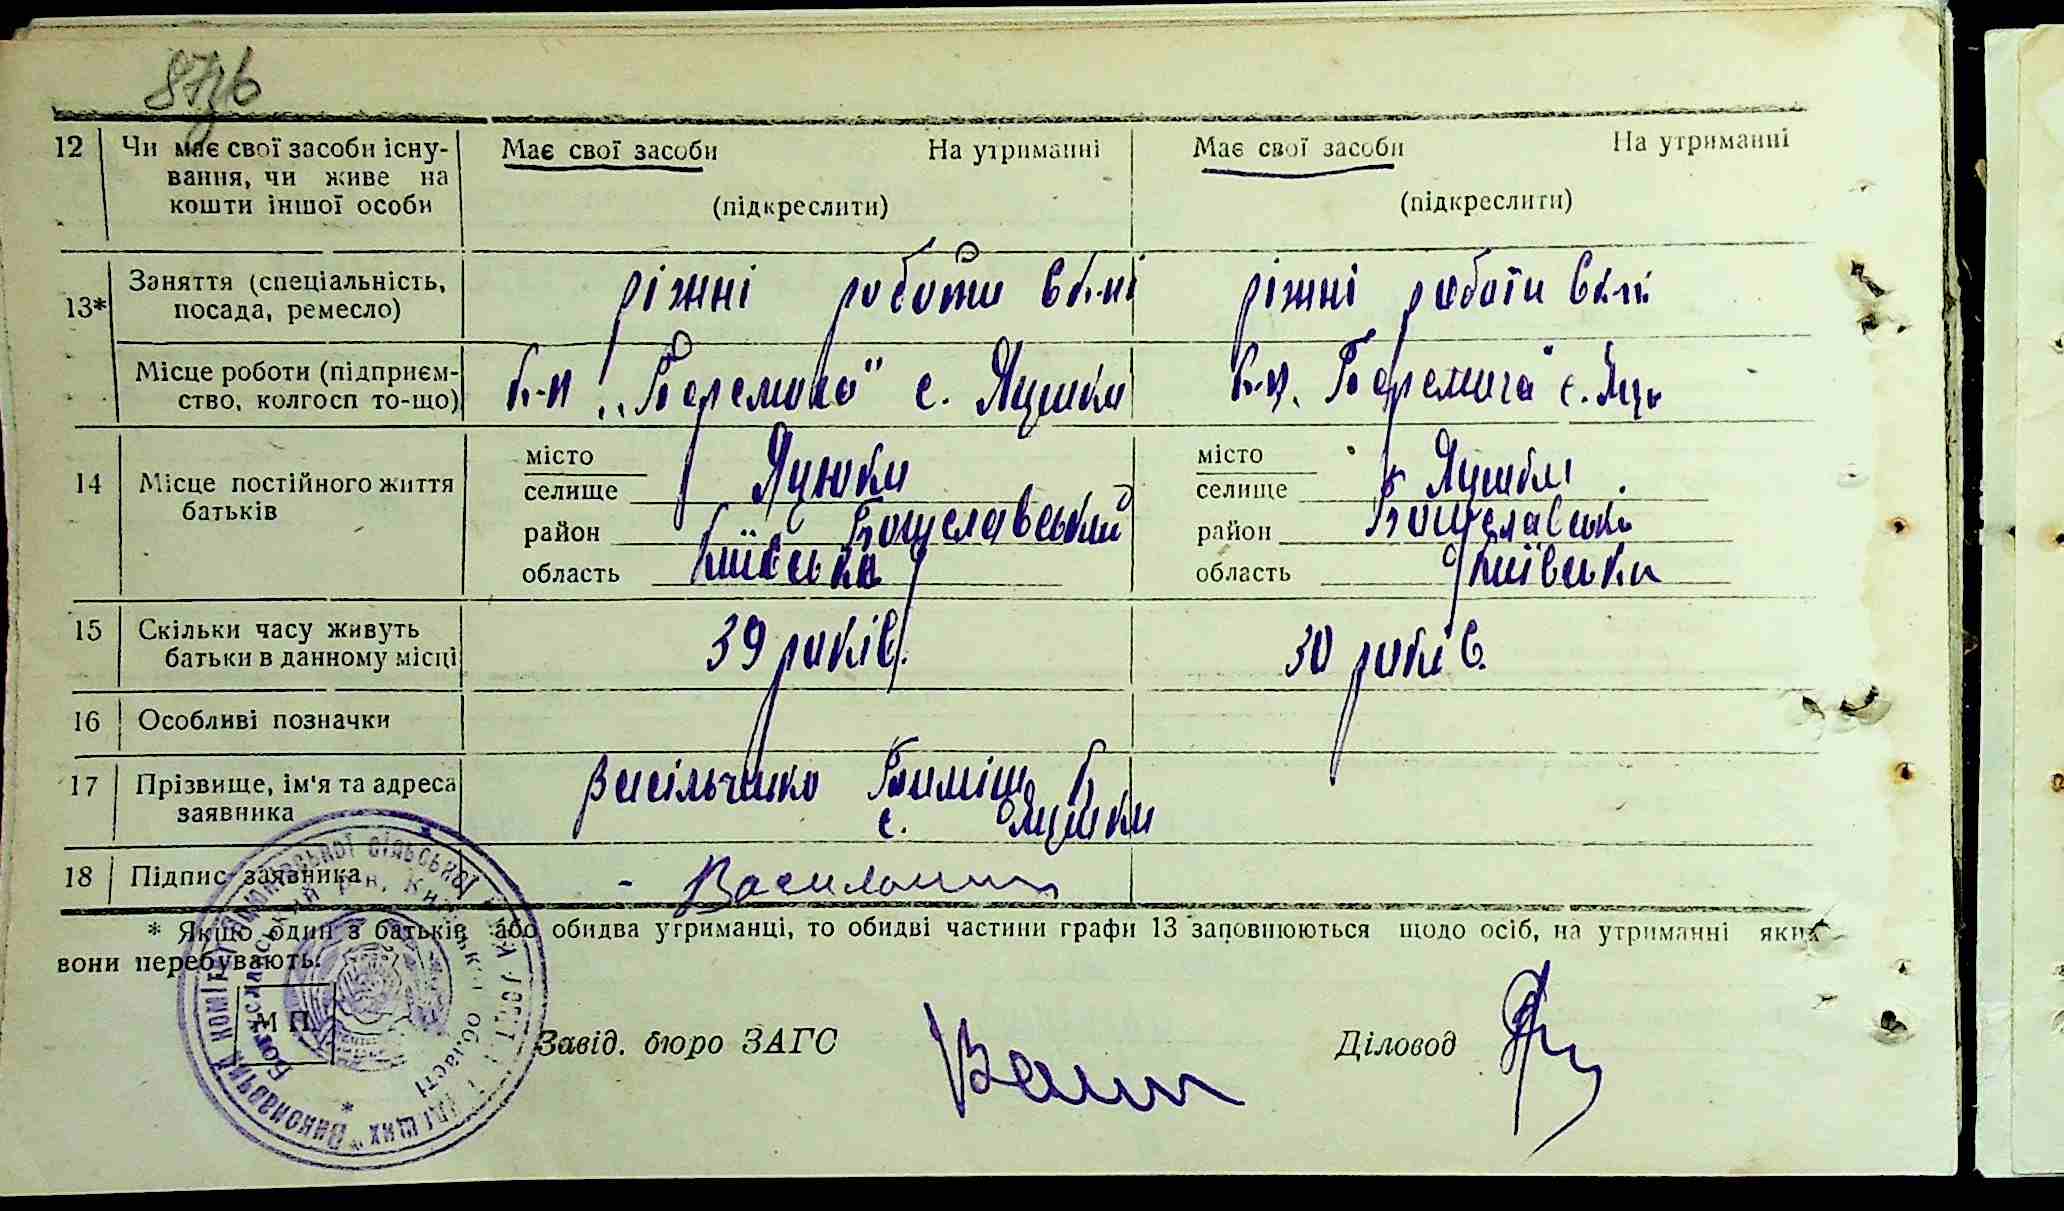 87зв
12 Чи має свої засоби існу- Має свої засоби На утриманні Має свої засоби На утриманні
вання, чи живе на
кошти іншої особи (підкреслити) (підкреслити)
13* Заняття (спеціальність, ріжні роботи в к-пі ріжні роботи в к-пі
посада, ремесло)
Місце роботи (підприєм- к-п „Перемога" с. Яцюки к-п. Перемога" с. Яцю
ство, колгосп то-що)
14 Місце постійного життя місто місто
батьків селище Яцюки селище Яцюки
район Богуславський район Богуславськ
область Київська область Київська
15 Скільки часу живуть 39 років. 30 років.
батьки в данному місці
16 Особливі позначки
17 Прізвище, ім'я та адреса Васільченко
заявника с. Яцюки
18 Підпис заявника
* Якщо один з батьків або обидва утриманці, то обидві частини графи 13 заповнюються щодо осіб, на утриманні яких
вони перебувають.
М П. Завід. бюро ЗАГС Діловод
Виконавчий комітет сільської
Богуславський р-н, Київської області